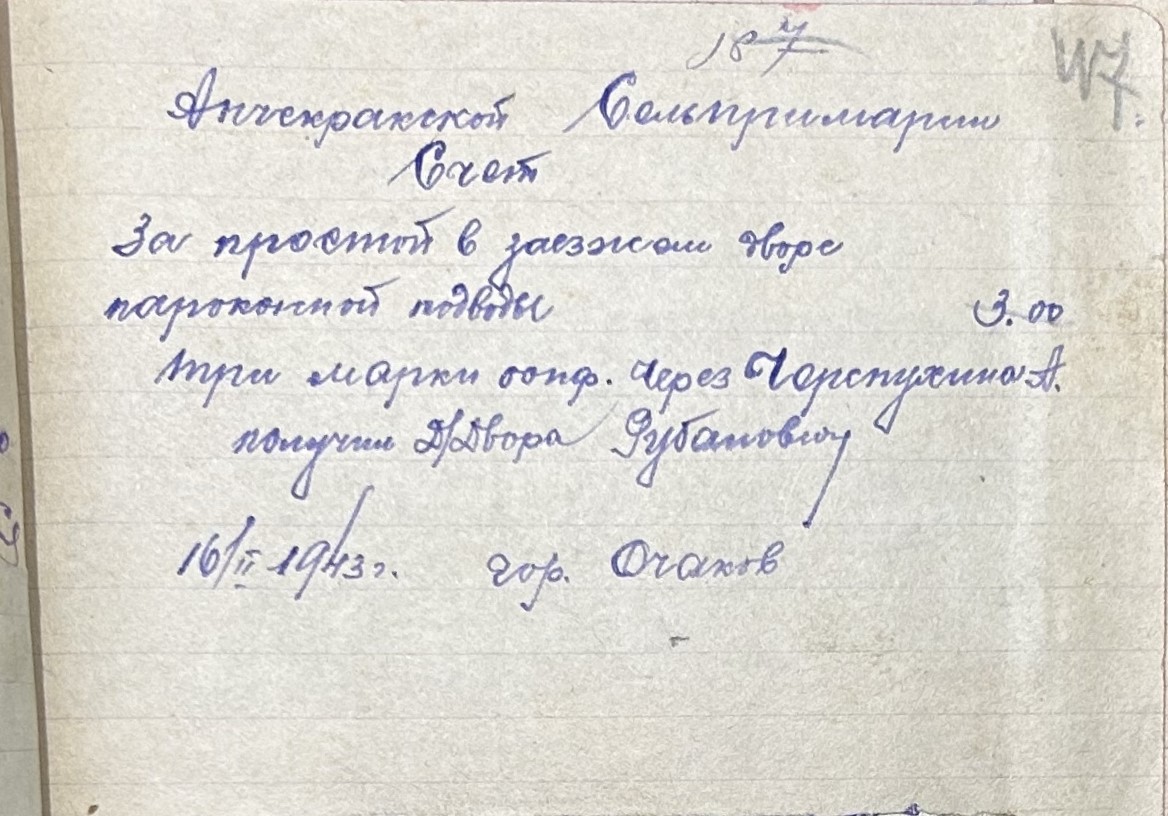 47.
Анчекракской Сельпримарии
Счет
За простой в заезжом дворе
пароконной подводы 3.00
три марки оопф. через Черепухина А.
получил Д/Двора Рубанович
16/II 1943 г. гор. Очаков